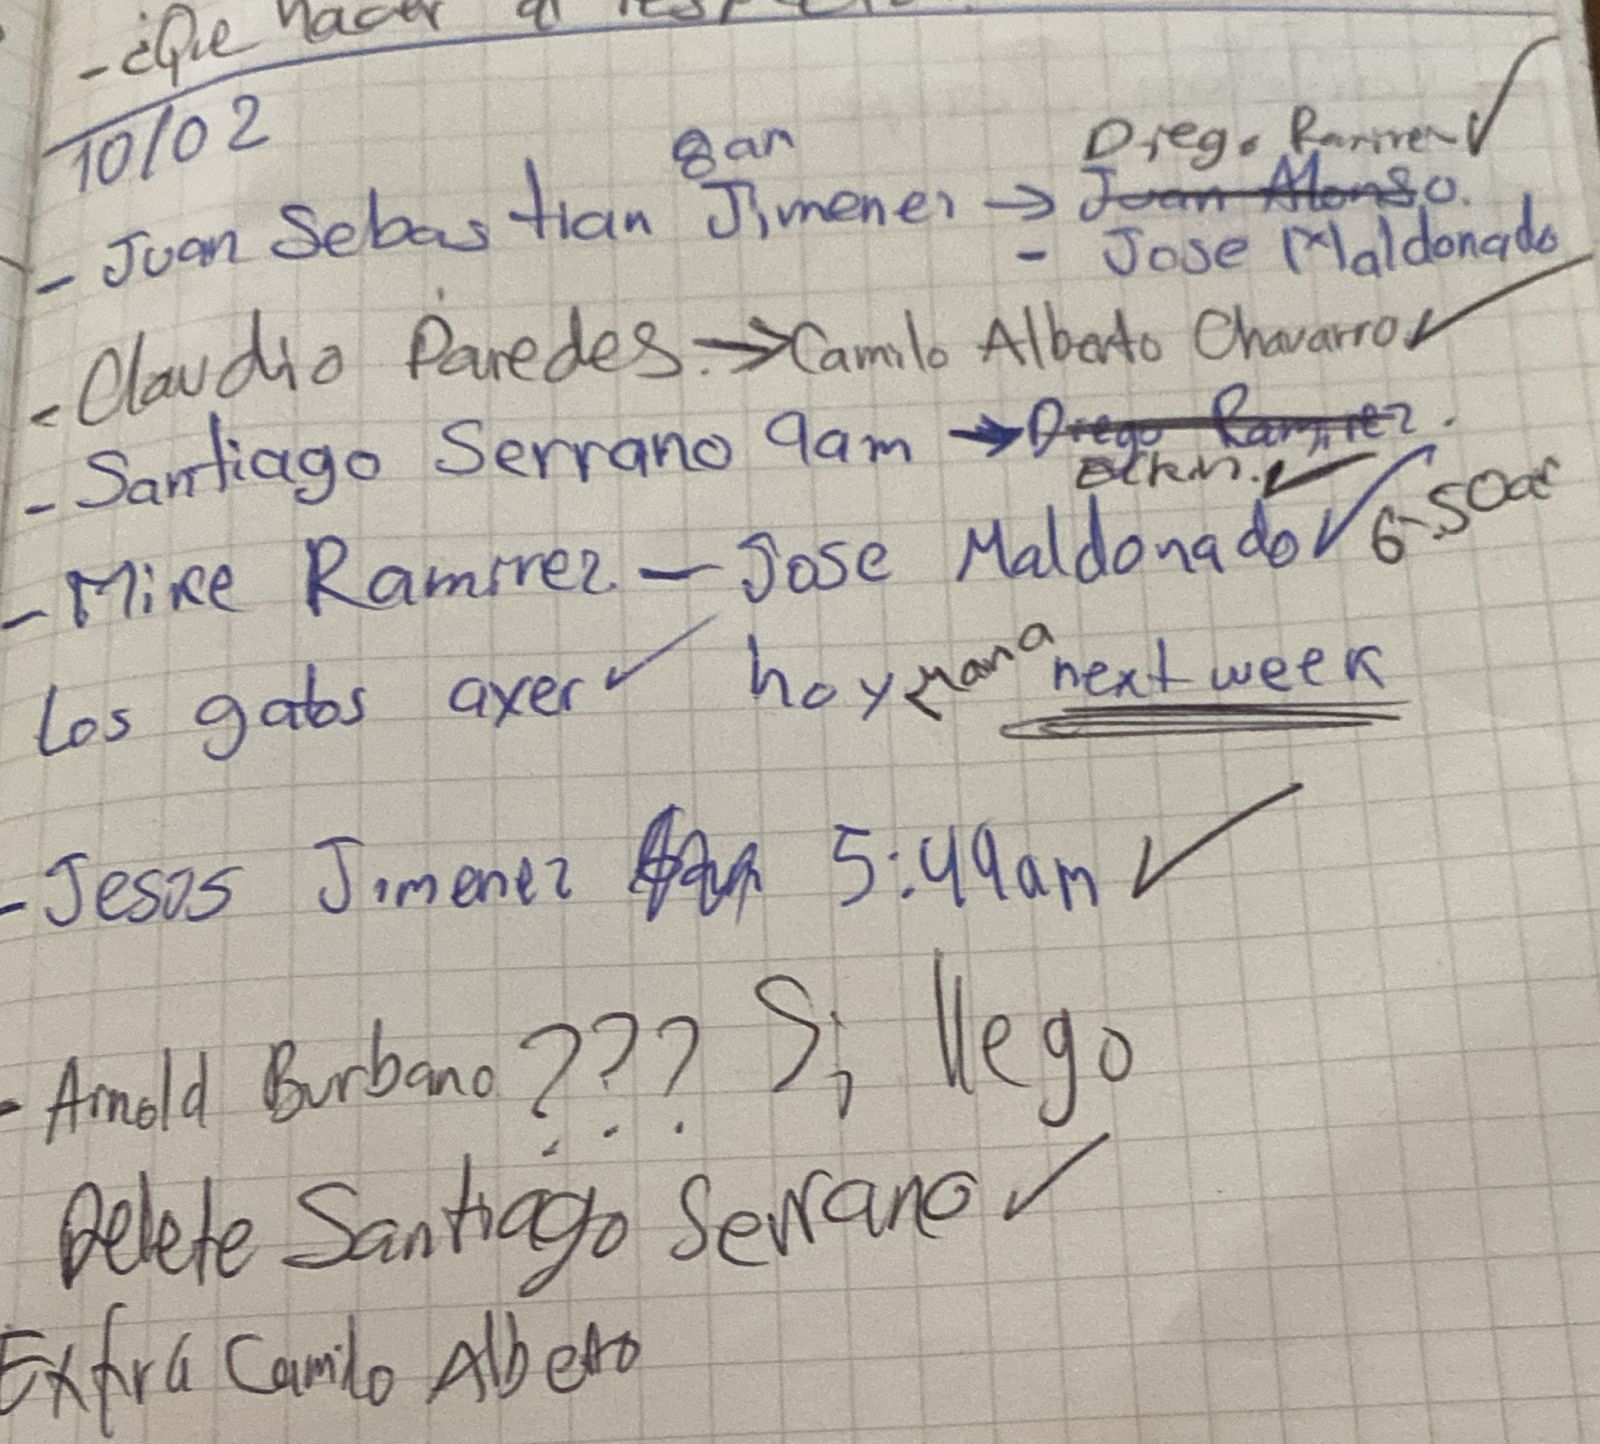 - ¿Que hacer al respecto.
10/02
8am Diego Ramirez ✓
- Juan Sebastian Jimenez → Juan Alonso.
- Jose Maldonado
- Claudio Paredes. → Camilo Alberto Chavarro ✓
- Santiago Serrano 9am → Diego Ramirez.
Elkin. ✓
- Mike Ramirez - Jose Maldonado ✓ 6:50am
Los gatos ayer ✓ hoy next week
- Jesus Jimenez 5:49am ✓
- Arnold Burbano ??? Si llego
Delete Santiago Serrano ✓
Extra Camilo Alberto